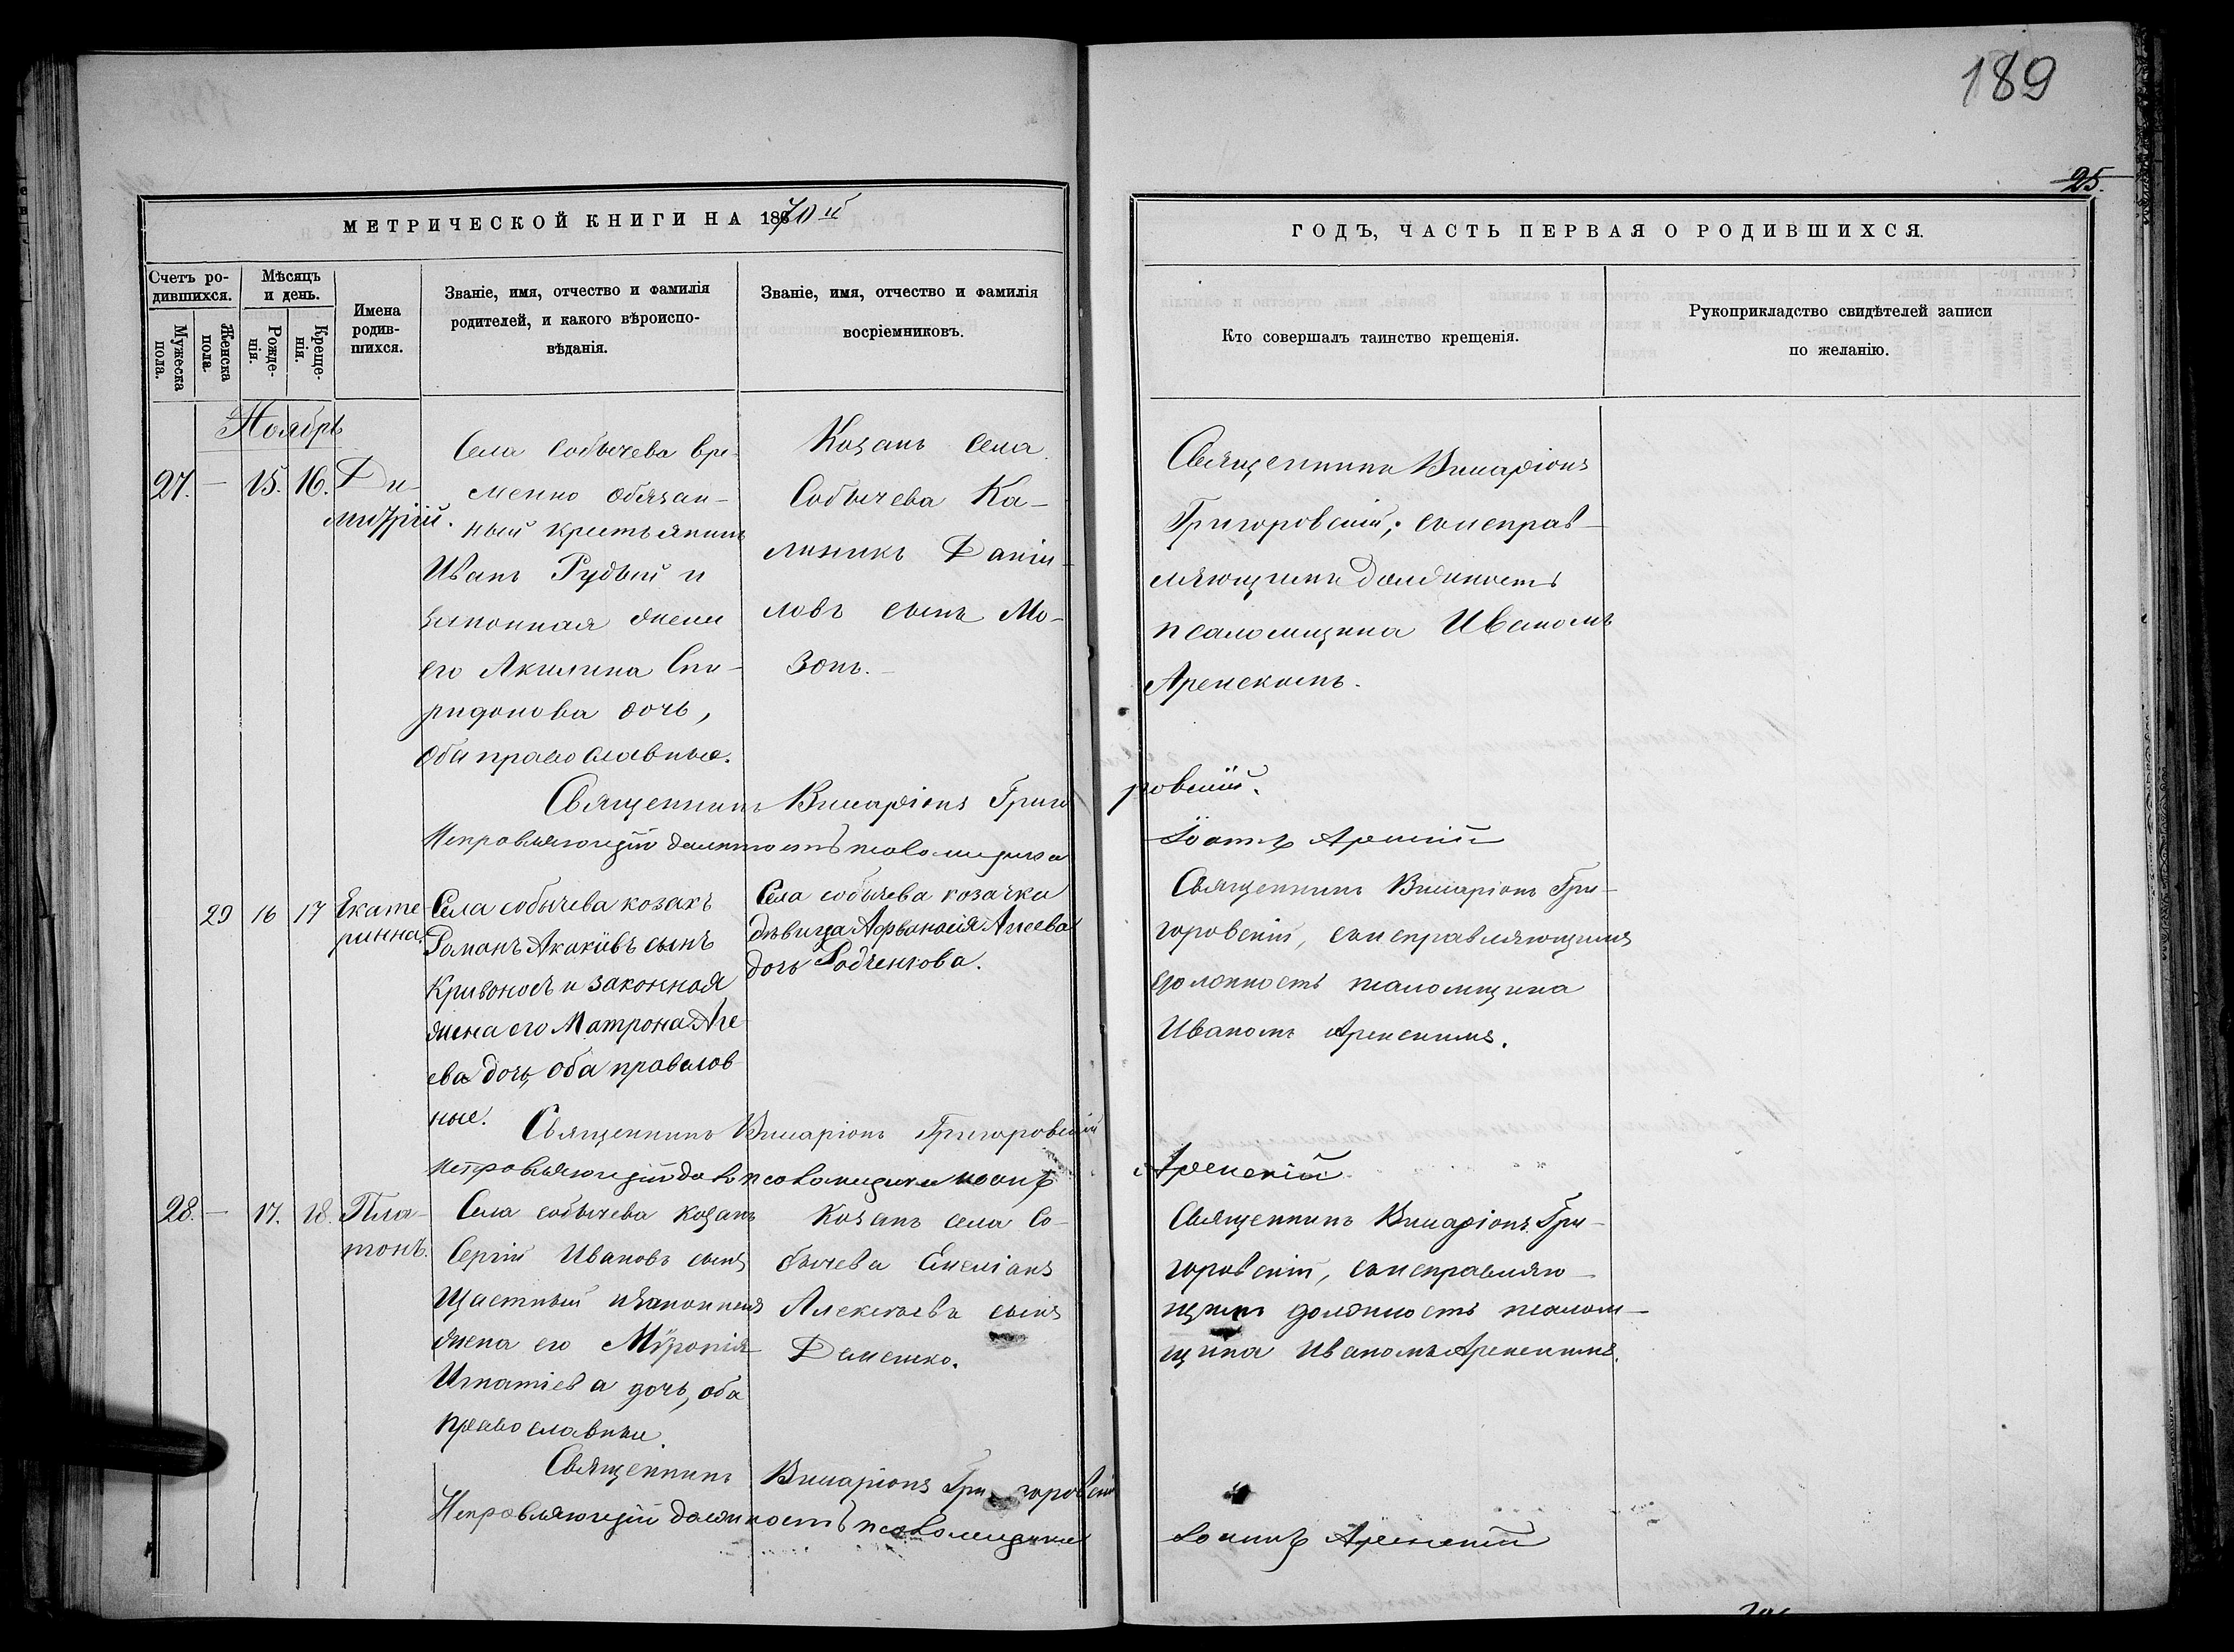 189
25.
МЕТРИЧЕСКОЙ КНИГИ НА 1870й
ГОДЪ, ЧАСТЬ ПЕРВАЯ О РОДИВШИХСЯ.
Счетъ ро-
дившихся.
Мужеска
пола.
Женска
пола.
Мѣсяцъ
и день.
Рожде-
нія.
Креще-
нія.
Имена
родив-
шихся.
Званіе, имя, отчество и фамилія
родителей, и какого вѣроиспо-
вѣданія.
Званіе, имя, отчество и фамилія
воспріемниковъ.
Кто совершалъ таинство крещенія.
Рукоприкладство свидѣтелей записи
по желанію.
Ноябрь
27. — 15. 16.
Ди-
митрій.
Села Собычева вре-
менно обязан-
ный крестьянинъ
Иванъ Рудый и
законная жена
его Акилина Спи-
ридонова дочь,
оба православные.
Козакъ села
Собычева Ка-
линикъ Даніи-
ловъ сынъ Мо-
зокъ.
Священникъ Виссаріонъ
Григоровскій, со исправ-
ляющимъ должность
псаломщика Иваномъ
Аренскимъ.
Священникъ Виссаріонъ Григоровскій.
Исправляющій должность псаломщика Іоаннъ Аренскій
29 16 17
Екате-
ринна.
Села собычева козакъ
Романъ Акакіивъ сынъ
Кривоносъ и законная
жена его Матрона Аге-
ева дочь, оба православ
ные.
Села собычева козачка
дѣвица Афонасія Агеева
дочь Радченкова.
Священникъ Виссаріонъ Гри-
горовскій, со исправляющимъ
должность псаломщика
Иваномъ Аренскимъ.
Священникъ Виссаріонъ Григоровскій
Исправляющій дол псаломщика Іоаннъ Аренскій
28. — 17. 18.
Пла-
тонъ.
Села собычева козакъ
Сергій Ивановъ сынъ
Щастный и законная
жена его Мѵронія
Игнатіева дочь, оба
православны.
Козакъ села Со-
бычева Емеліанъ
Алексѣевъ сынъ
Демешко.
Священникъ Виссаріонъ Гри-
горовскій, со исправляю-
щимъ должность псалом-
щика Иваномъ Аренскимъ.
Священникъ Виссаріонъ Григоровскій
Исправляющій должность псаломщика Іоаннъ Аренскій